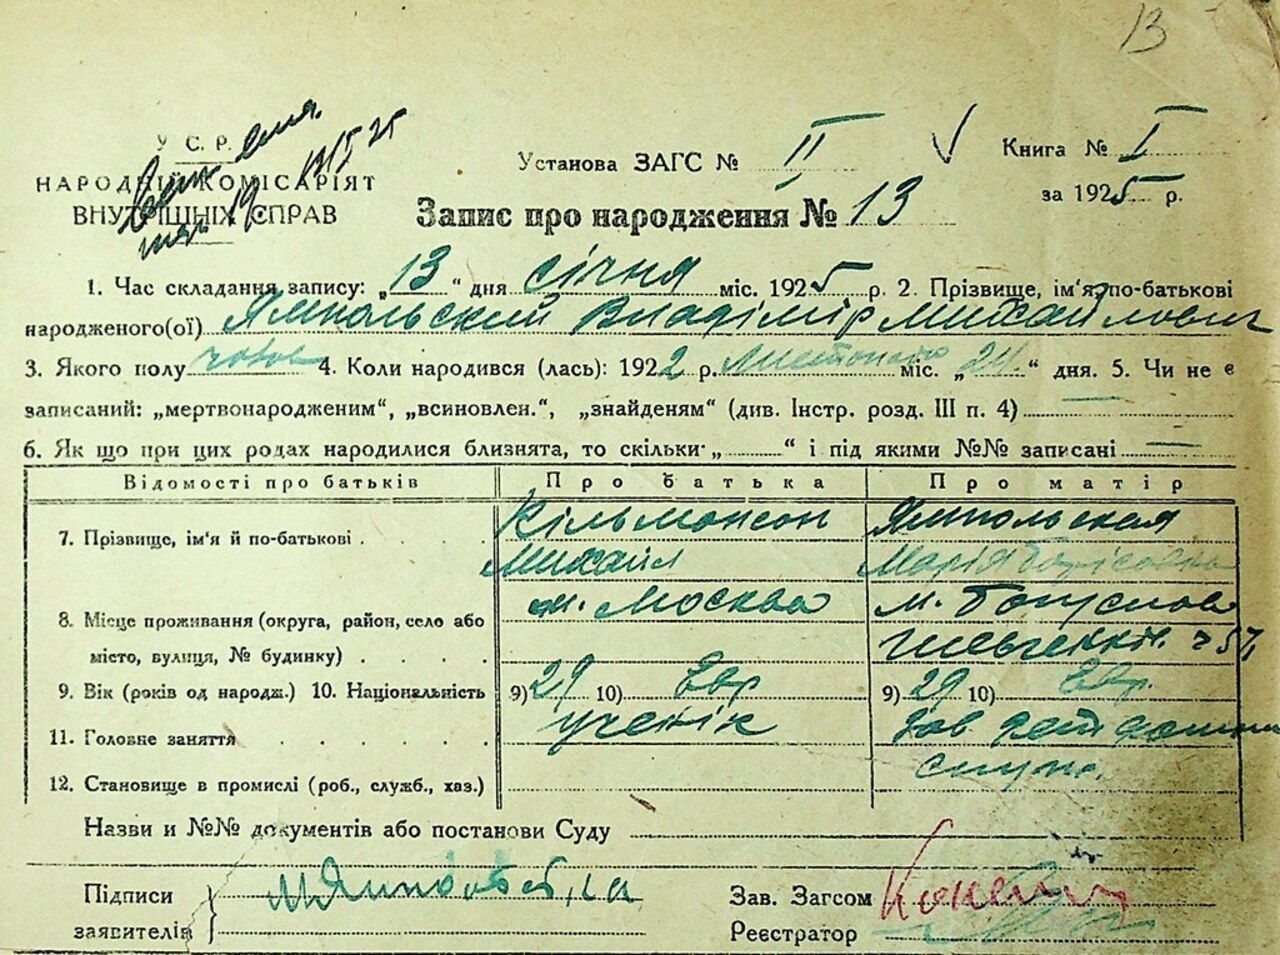 13
У С. Р.
НАРОДНІЙ КОМІСАРІЯТ
ВНУТРІШНІХ СПРАВ
Установа ЗАГС № II
Книга № I
за 1925 р.
Запис про народження № 13
1. Час складання запису: „13“ дня січня міс. 1925 р. 2. Прізвище, ім'я, по-батькові
народженого(ої) Ямпольский Владімір Михайлович
3. Якого полу чолов 4. Коли народився (лась): 1922 р. Листопада міс. „24“ дня. 5. Чи не є
записаний: „мертвонародженим“, „всиновлен.“, „знайденям“ (див. Інстр. розд. III п. 4) —
6. Як що при цих родах народилися близнята, то скільки „ “ і під якими №№ записані —
Відомості про батьків Про батька Про матір
7. Прізвище, ім'я й по-батькові Кільмансон Ямпольская
Михаил Марія Борісовна
8. Місце проживання (округа, район, село або м. Москва м. Богуслов
місто, вулиця, № будинку) ч 57
9. Вік (років од народж.) 10. Національність 9) 29 10) Евр 9) 29 10) Евр.
11. Головне заняття ученік Зав дет домом
12. Становище в промислі (роб., служб., хаз.) служ.
Назви и №№ документів або постанови Суду
Підписи
заявителів
Зав. Загсом
Реєстратор